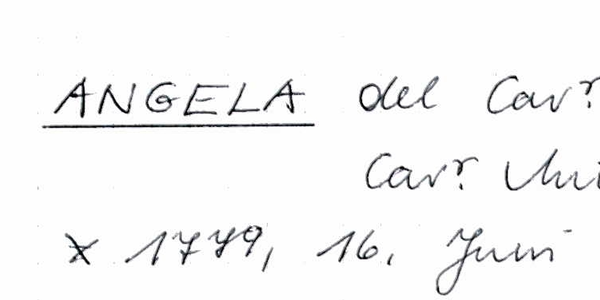 ANGELA del Cavr.
Cavr.
* 1779, 16. Juni